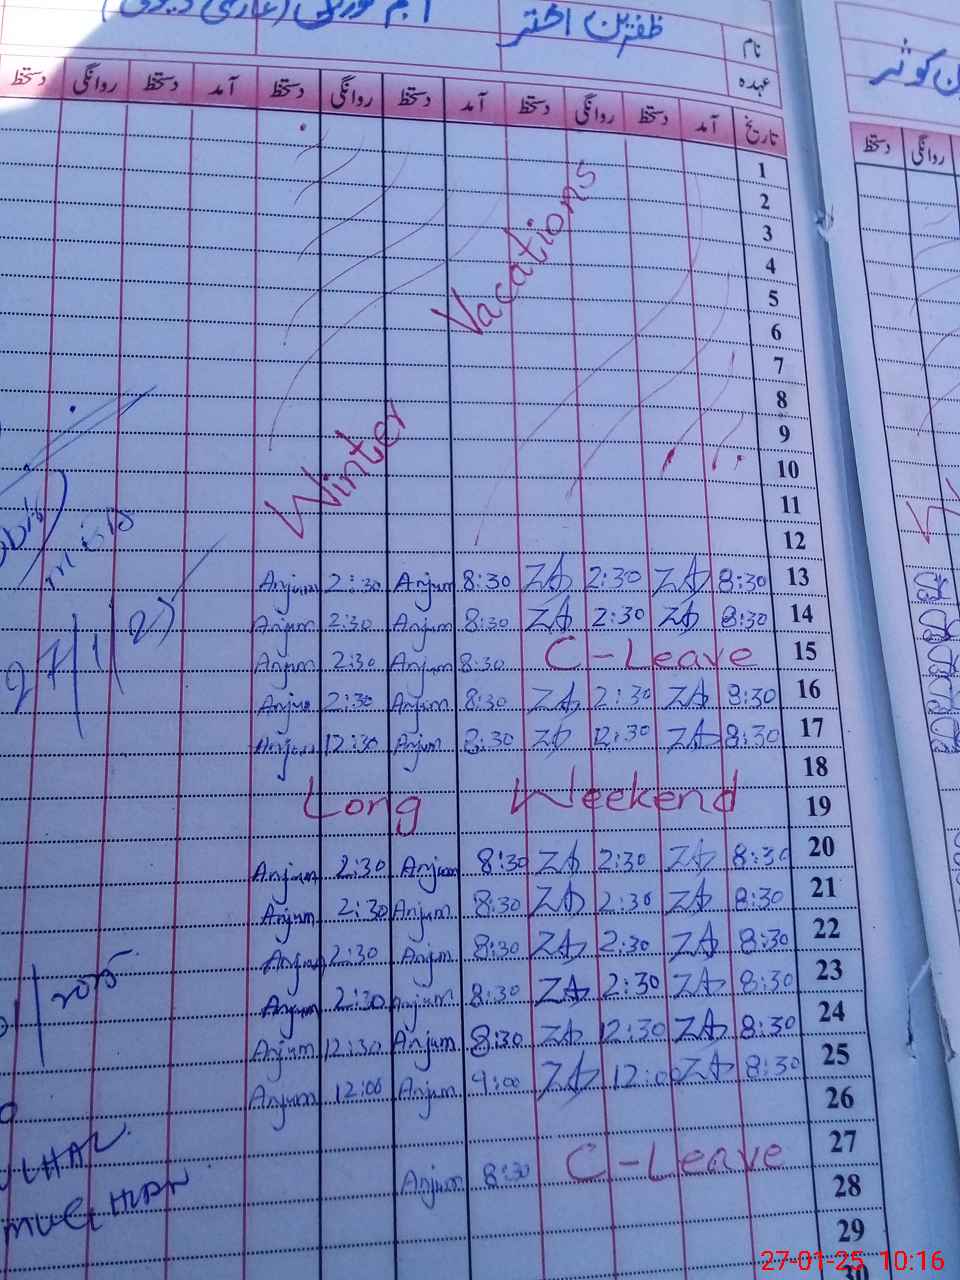 نام ظفرین اختر
عہدہ
تاریخ آمد دستخط روانگی دستخط آمد دستخط روانگی دستخط آمد دستخط روانگی دستخط
کوثر
روانگی دستخط
1
2
3
4
5
6
7
8
9
10
11
12
Winter Vacations
Anjum 2:30 Anjum 8:30 ZA 2:30 ZA 8:30 13
Anjum 2:30 Anjum 8:30 ZA 2:30 ZA 8:30 14
Anjum 2:30 Anjum 8:30 C-Leave 15
Anjum 2:30 Anjum 8:30 ZA 2:30 ZA 8:30 16
Anjum 12:30 Anjum 8:30 ZA 12:30 ZA 8:30 17
18
Long Weekend 19
Anjum 2:30 Anjum 8:30 ZA 2:30 ZA 8:30 20
Anjum 2:30 Anjum 8:30 ZA 2:30 ZA 8:30 21
Anjum 2:30 Anjum 8:30 ZA 2:30 ZA 8:30 22
Anjum 2:30 Anjum 8:30 ZA 2:30 ZA 8:30 23
Anjum 12:30 Anjum 8:30 ZA 12:30 ZA 8:30 24
Anjum 12:00 Anjum 9:00 ZA 12:00 ZA 8:30 25
26
Anjum 8:30 C-Leave 27
28
29
30
27-01-25 10:16